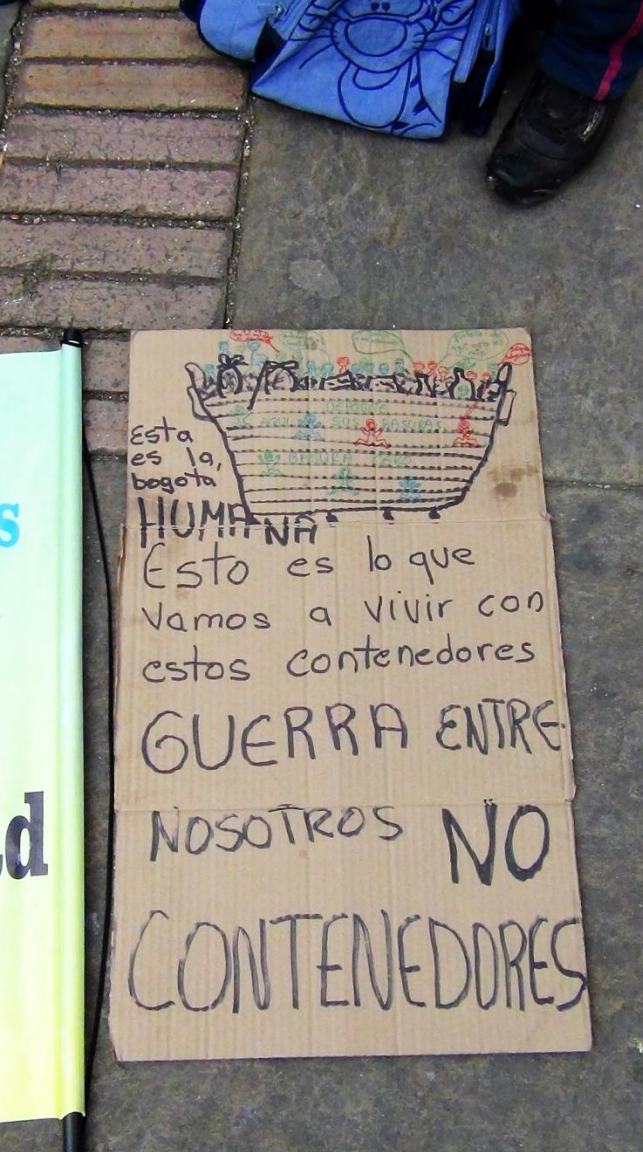 Esta
es la,
bogota
HUMANA
Esto es lo que
vamos a vivir con
estos contenedores
GUERRA ENTRE
NOSOTROS NO
CONTENEDORES
s
d